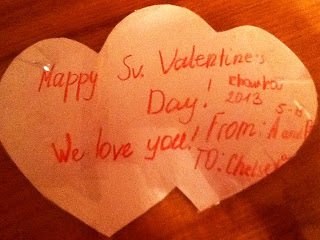 Happy Sv. Valentine's
Day!
2013
5-b
We love you! From: A and
TO: Chelsea